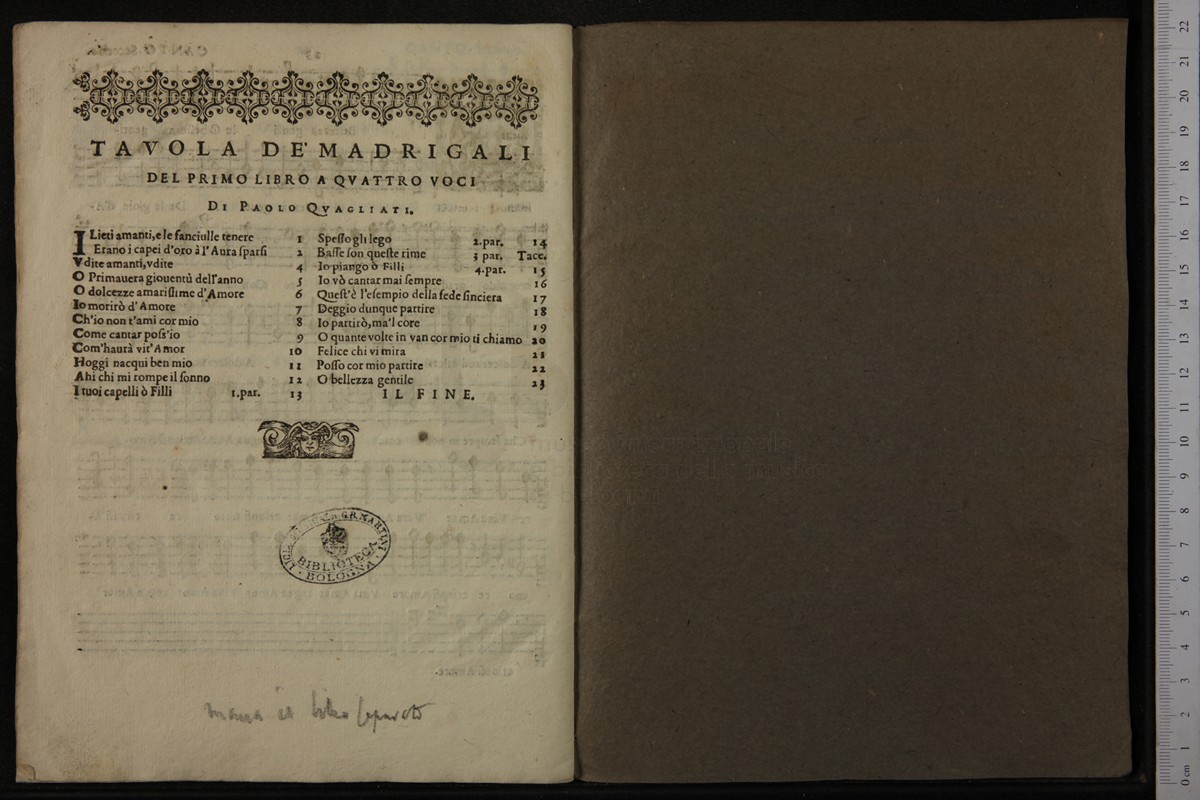 TAVOLA DE' MADRIGALI
DEL PRIMO LIBRO A QVATTRO VOCI
DI PAOLO QVAGLIATI.
I Lieti amanti, e le fanciulle tenere 1
Erano i capei d'oro à l'Aura sparsi 2
Vdite amanti, vdite 4
O Primauera giouentù dell'anno 5
O dolcezze amarissime d'Amore 6
Io morirò d'Amore 7
Ch'io non t'ami cor mio 8
Come cantar poss'io 9
Com'haurà vit'Amor 10
Hoggi nacqui ben mio 11
Ahi chi mi rompe il sonno 12
I tuoi capelli ò Filli 1.par. 13
Spesso gli lego 2.par. 14
Basse son queste rime 3 par. Tace.
Io piango ò Filli 4.par. 15
Io vò cantar mai sempre 16
Quest'è l'esempio della fede sinciera 17
Deggio dunque partire 18
Io partirò, ma'l core 19
O quante volte in van cor mio ti chiamo 20
Felice chi vi mira 21
Posso cor mio partire 22
O bellezza gentile 23
IL FINE.
G.B.MARTINI
LICEO
BIBLIOTECA
BOLOGNA
libro separato
0 cm 1 2 3 4 5 6 7 8 9 10 11 12 13 14 15 16 17 18 19 20 21 22